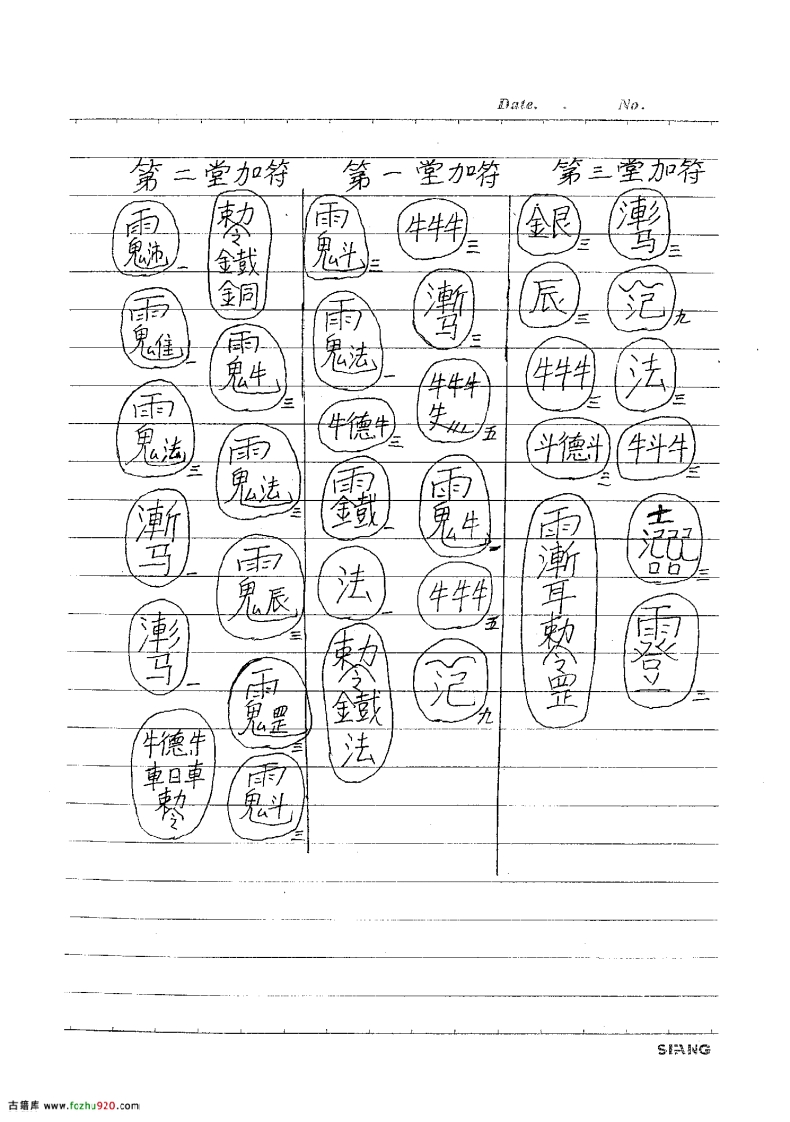 Date. . No.
第三堂加符
漸马 三
氾 九
法 三
牛斗牛 三
三
雨登 三
銀艮 三
辰 三
牛牛牛 三
斗德斗 三
雨漸耳勅令罡
第一堂加符
牛牛牛 三
漸马 三
牛牛牛 五
雨鬼牛
牛牛牛 五
氾 九
雨鬼斗 三
雨鬼法 一
牛德牛 三
雨鐵 一
法 一
勅令鐵法
第二堂加符
勅令鐵銅
雨鬼牛 三
雨鬼法 三
雨鬼辰 三
雨鬼罡 三
雨鬼斗 三
雨鬼 一
雨鬼 一
雨鬼法 三
漸马 一
漸马 一
牛德牛
車日車
勅令
SIANG
古籍库 www.fczhu920.com